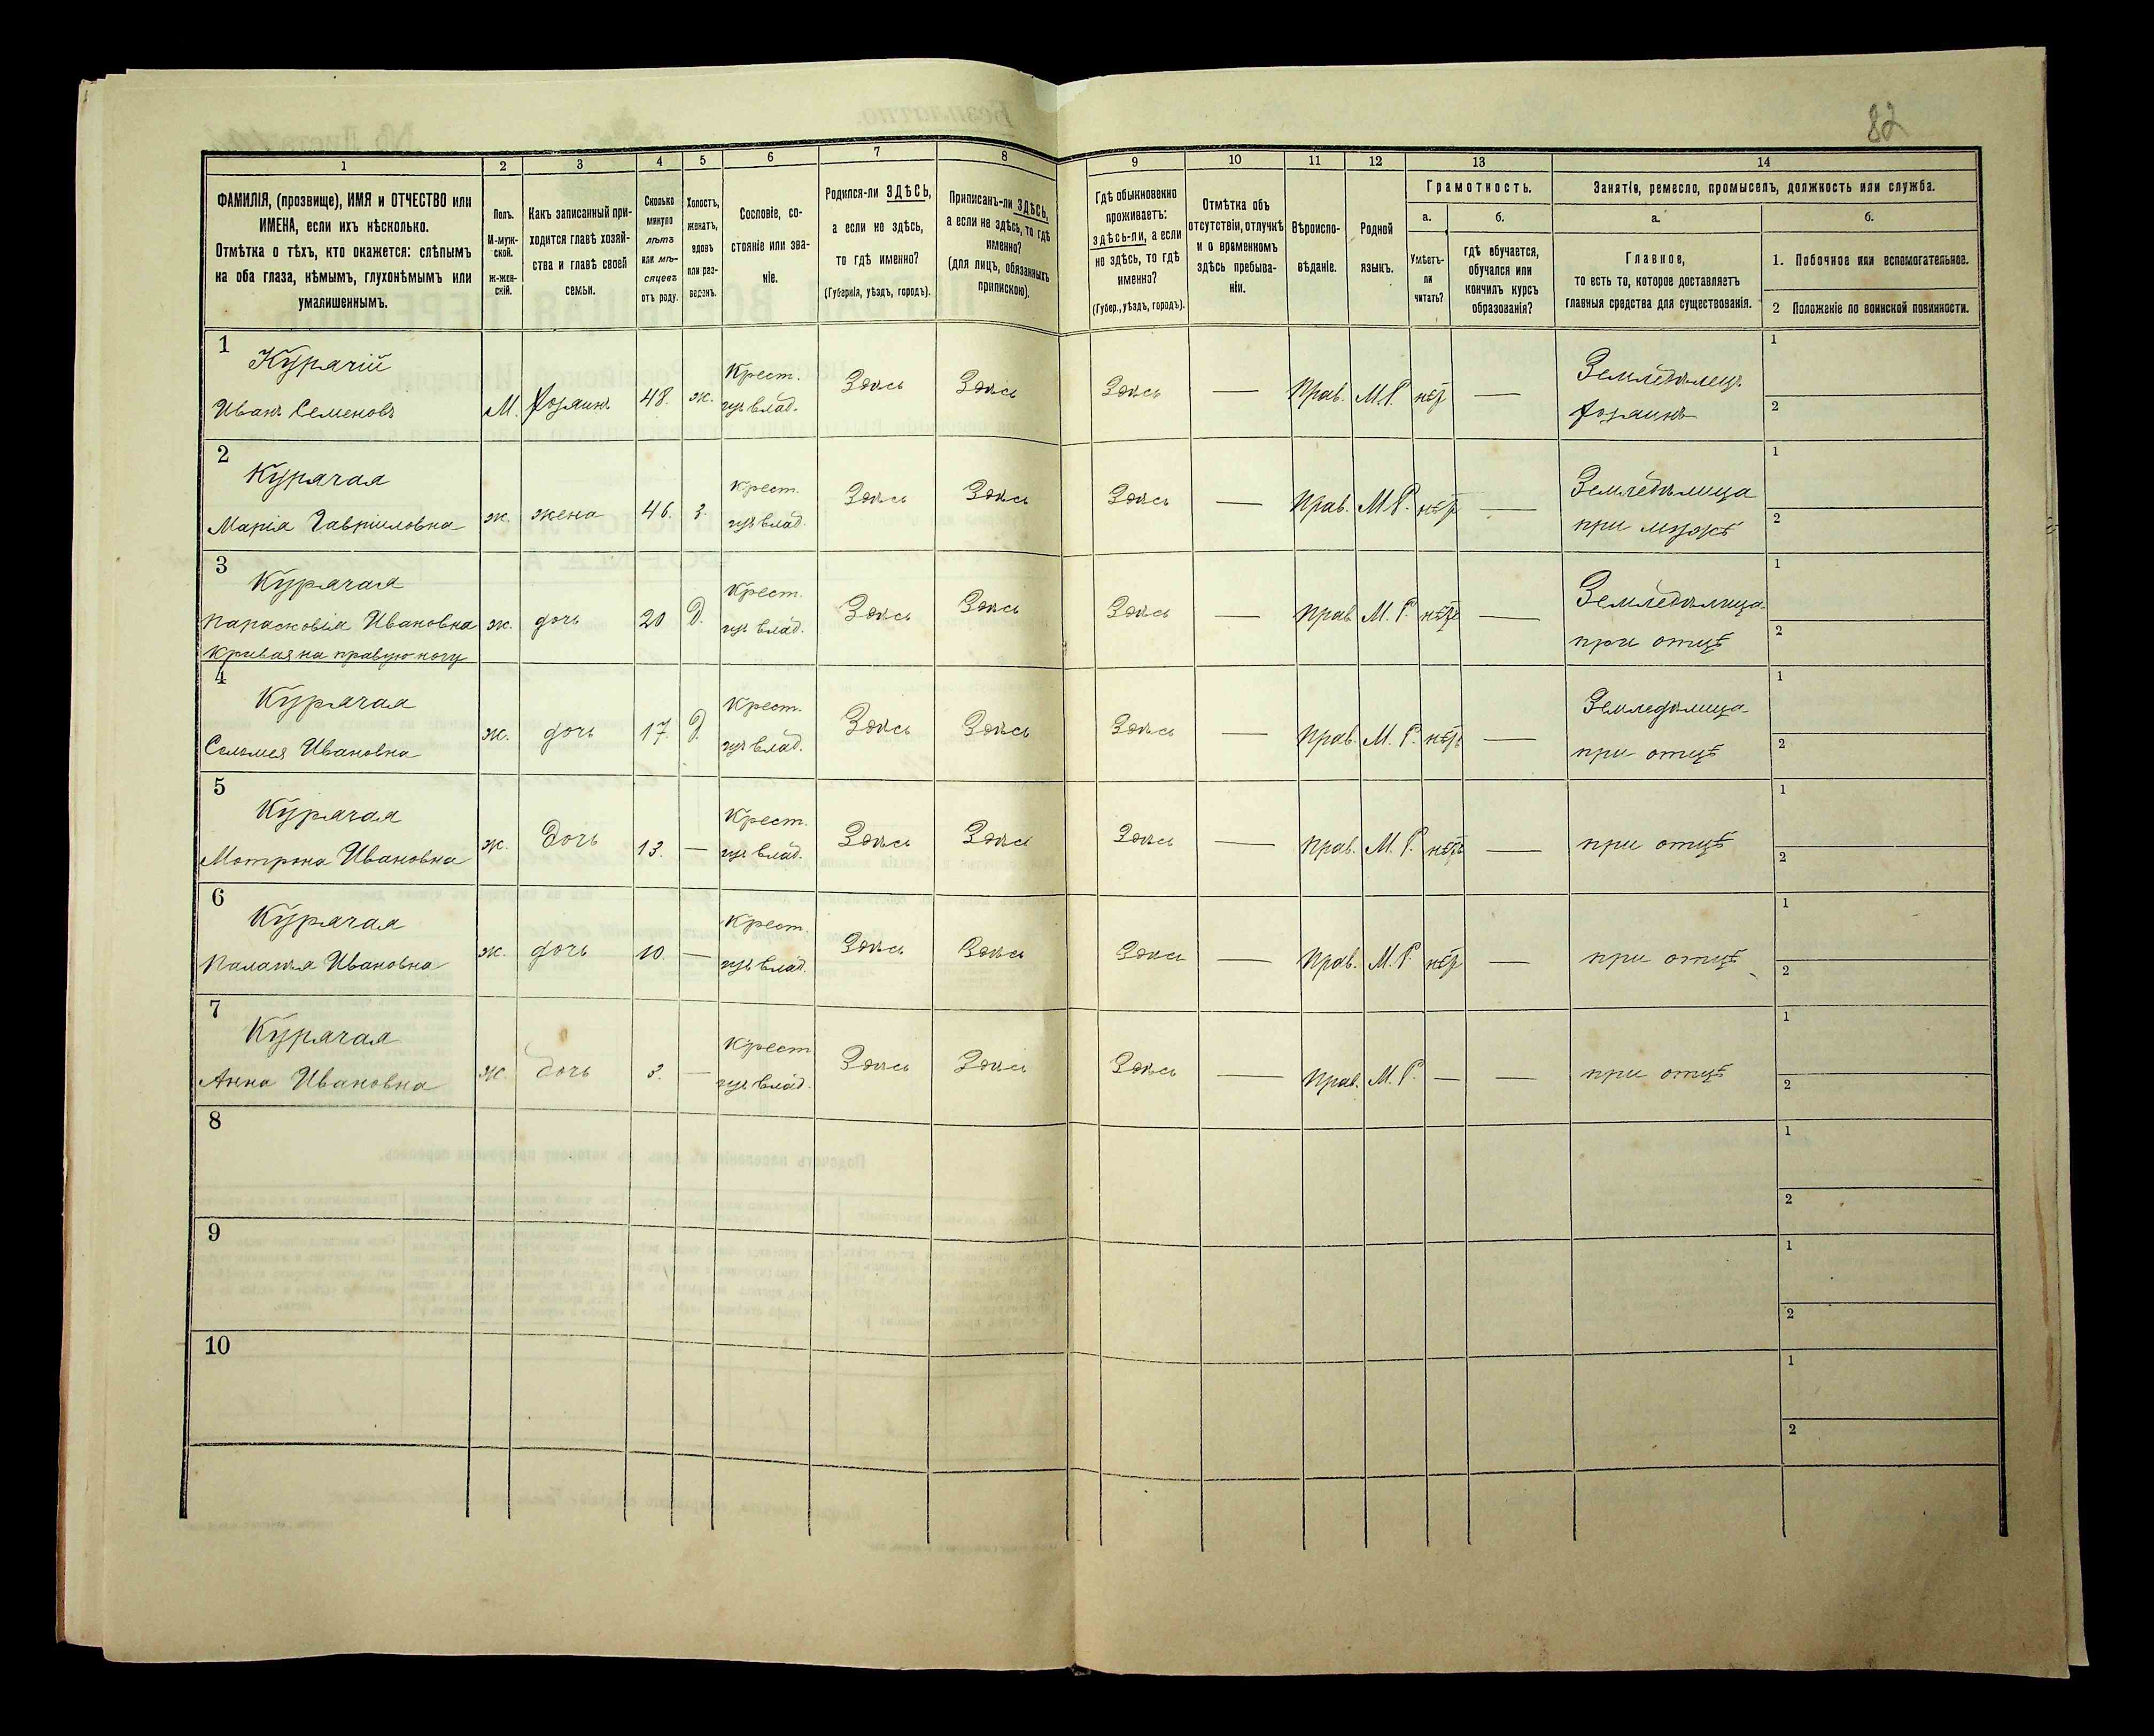 82
1 2 3 4 5 6 7 8 9 10 11 12 13 14
ФАМИЛІЯ, (прозвище), ИМЯ и ОТЧЕСТВО или
ИМЕНА, если ихъ нѣсколько.
Отмѣтка о тѣхъ, кто окажется: слѣпымъ
на оба глаза, нѣмымъ, глухонѣмымъ или
умалишеннымъ.
Полъ.
М-муж-
ской.
ж-жен-
скій.
Какъ записанный при-
ходится главѣ хозяй-
ства и главѣ своей
семьи.
Сколько
минуло
лѣтъ
или мѣ-
сяцевъ
отъ роду.
Холостъ,
женатъ,
вдовъ
или раз-
веденъ.
Сословіе, со-
стояніе или зва-
ніе.
Родился-ли ЗДѢСЬ,
а если не здѣсь,
то гдѣ именно?
(Губернія, уѣздъ, городъ).
Приписанъ-ли ЗДѢСЬ,
а если не здѣсь, то гдѣ
именно?
(для лицъ, обязанныхъ
припискою).
Гдѣ обыкновенно
проживаетъ:
здѣсь-ли, а если
не здѣсь, то гдѣ
именно?
(Губер., уѣздъ, городъ).
Отмѣтка объ
отсутствіи, отлучкѣ
и о временномъ
здѣсь пребыва-
ніи.
Вѣроиспо-
вѣданіе.
Родной
языкъ.
Грамотность.
а.
Умѣетъ-
ли
читать?
б.
гдѣ обучается,
обучался или
кончилъ курсъ
образованія?
Занятіе, ремесло, промыселъ, должность или служба.
а.
Главное,
то есть то, которое доставляетъ
главныя средства для существованія.
б.
1. Побочное или вспомогательное.
2 Положеніе по воинской повинности.
1
Курячій Крест. Земледѣлецъ 1
Иванъ Семеновъ М. хозяинъ 48. ж. изъ влад. Здѣсь Здѣсь Здѣсь — Прав. М.Р. нѣт — хозяинъ 2
2
Курячая Крест. Земледѣлица 1
Марія Гавріиловна ж. жена 46. з. изъ влад. Здѣсь Здѣсь Здѣсь — Прав. М.Р. нѣт — при мужѣ 2
3
Курячая Крест. Земледѣлица 1
Парасковія Ивановна ж. дочь 20 д. изъ влад. Здѣсь Здѣсь Здѣсь — Прав. М.Р. нѣтъ — при отцѣ 2
кривая на правую ногу
4
Курячая Крест. Земледѣлица 1
Соломея Ивановна ж. дочь 17. д. изъ влад. Здѣсь Здѣсь Здѣсь — Прав. М.Р. нѣтъ — при отцѣ 2
5
Курячая Крест. 1
Мотрона Ивановна ж. дочь 13. — изъ влад. Здѣсь Здѣсь Здѣсь — Прав. М.Р. нѣтъ — при отцѣ 2
6
Курячая Крест. 1
Палажя Ивановна ж. дочь 10. — изъ влад. Здѣсь Здѣсь Здѣсь — Прав. М.Р. нѣт — при отцѣ 2
7
Курячая Крест. 1
Анна Ивановна ж. дочь 3. — изъ влад. Здѣсь Здѣсь Здѣсь — Прав. М.Р. — — при отцѣ 2
8 1
2
9 1
2
10 1
2